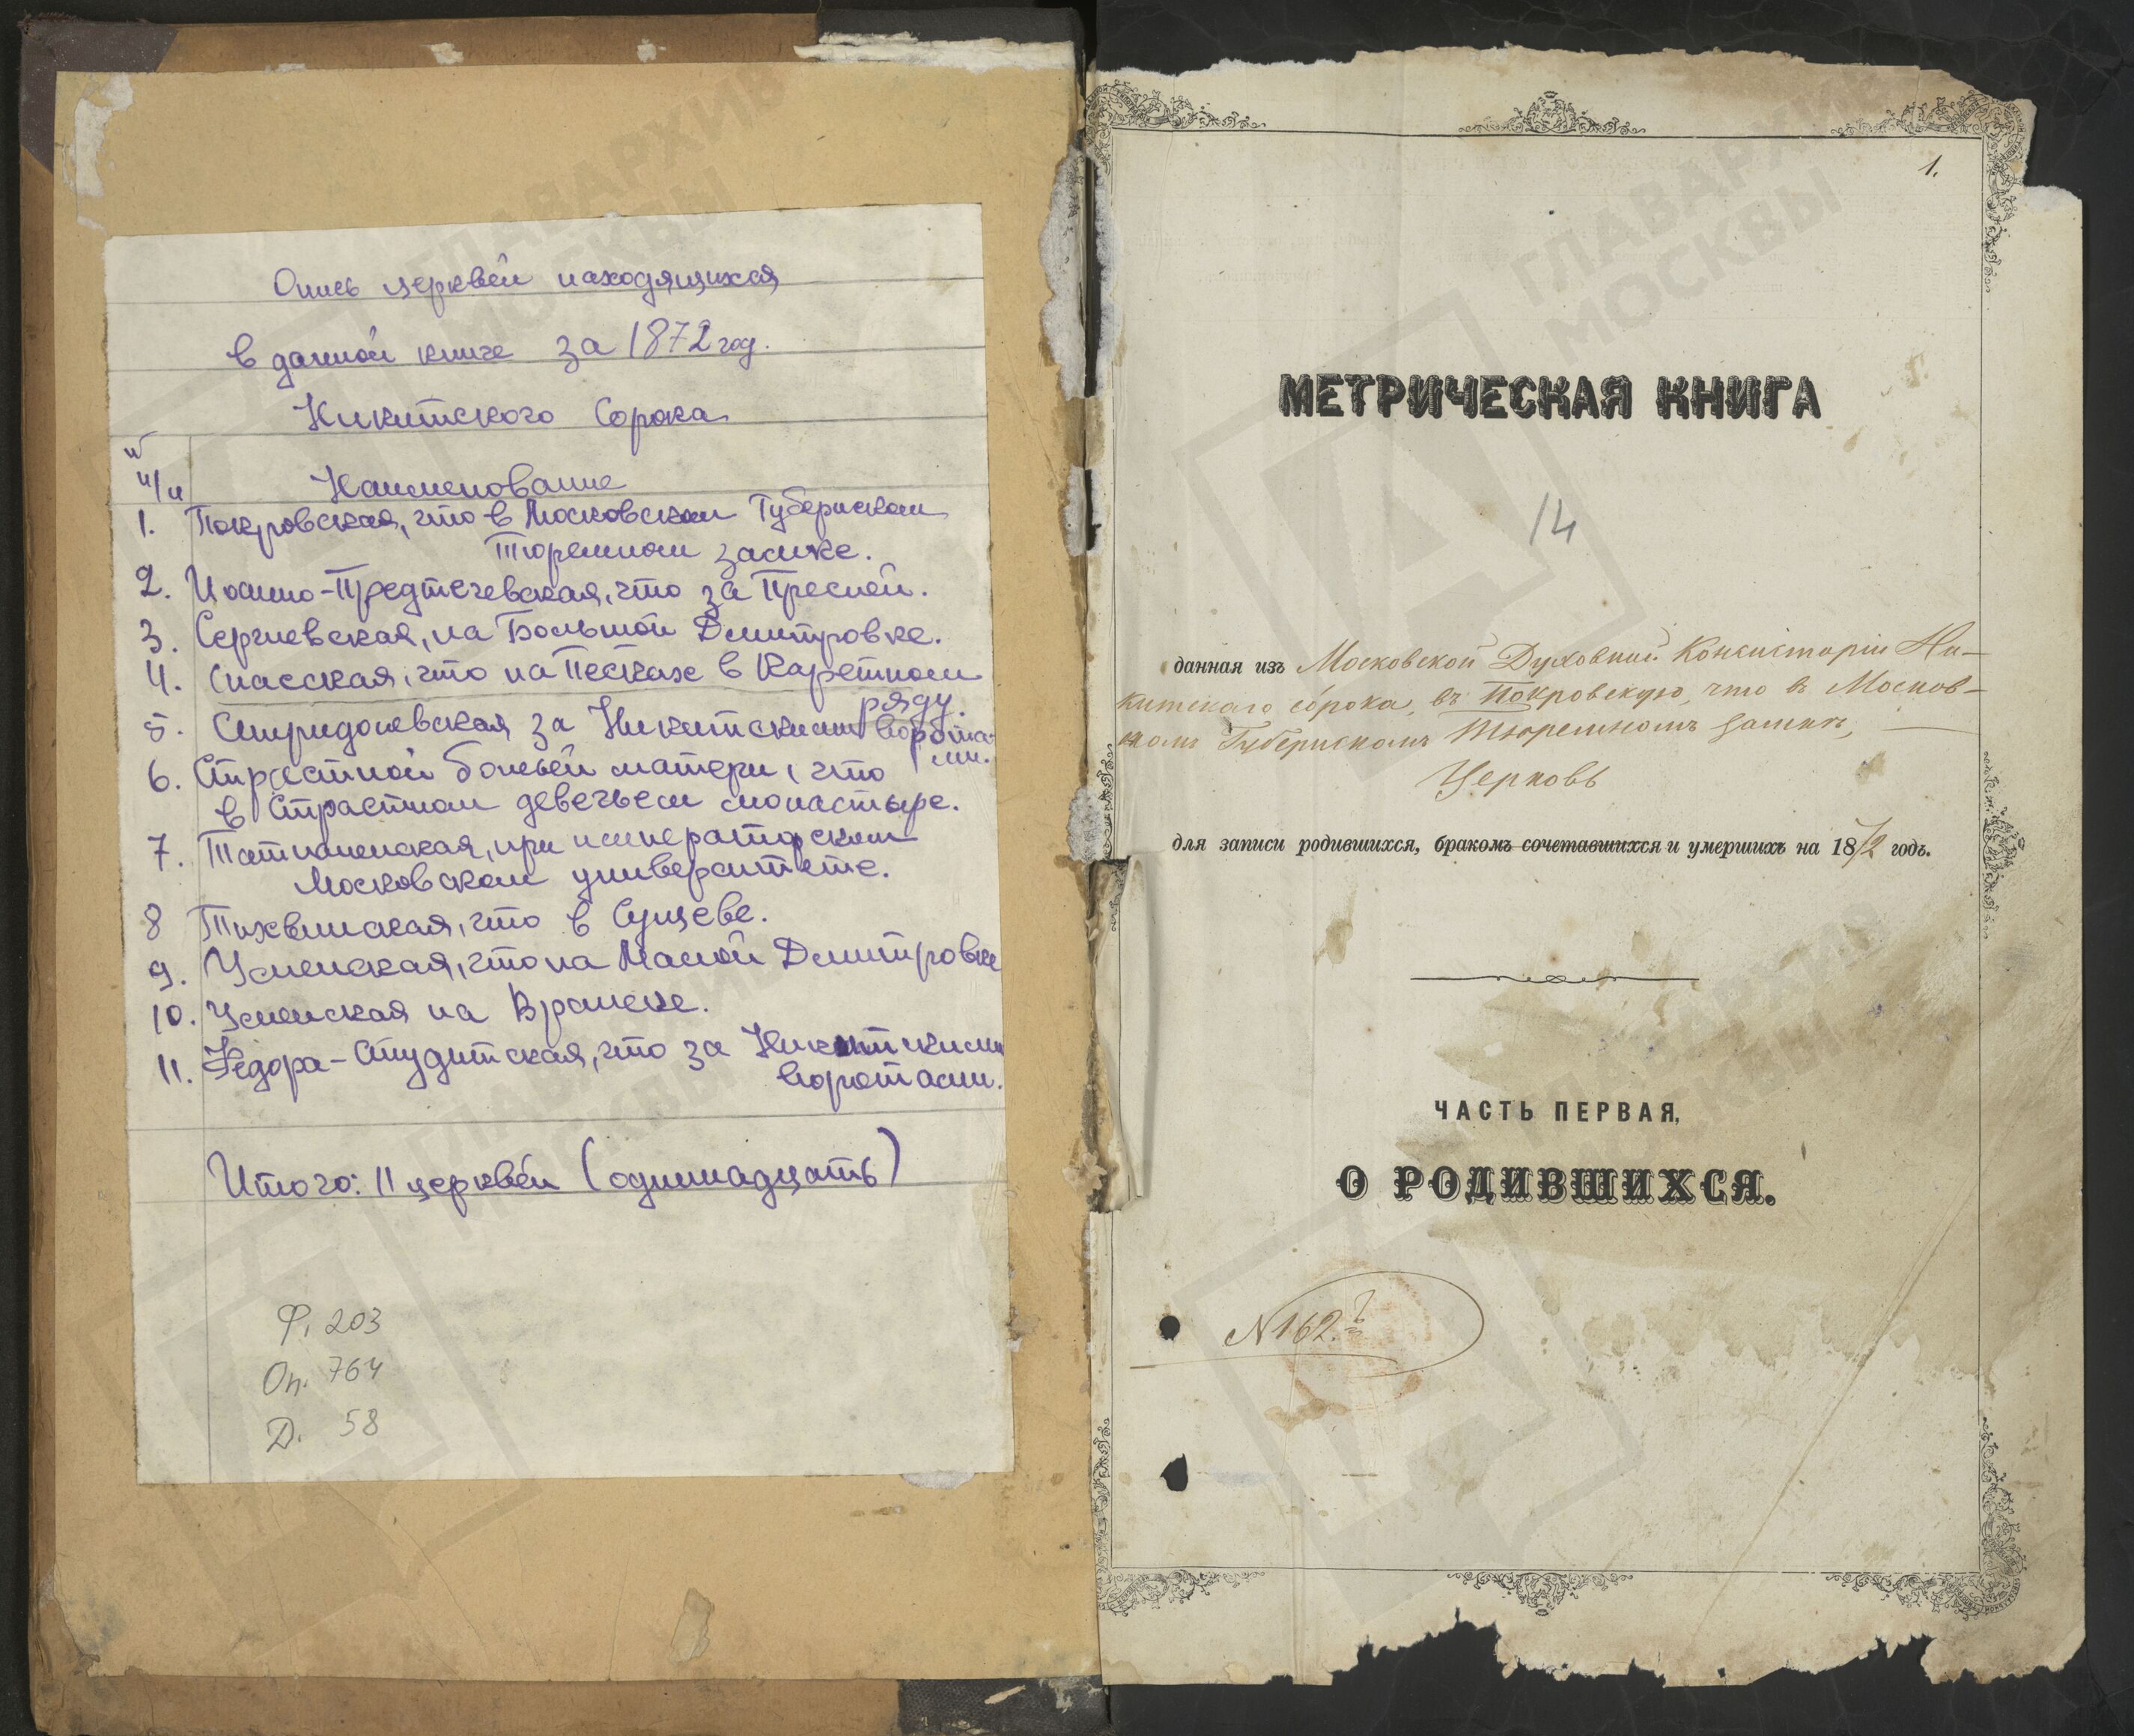 Опись церквей находящихся
в данной книге за 1872 год.
Никитского Сорока
№
п/п
Наименование
1. Покровская, что в Московском Губернском
Тюремном замке.
2. Иоанно-Предтечевская, что за Пресней.
3. Сергиевская, на Большой Дмитровке.
4. Спасская, что на Песках в Каретном
ряду.
5. Спиридоневская за Никитскими ворота-
ми.
6. Страстной божьей матери, что
в Страстном девечьем монастыре.
7. Татианенская, при императорском
Московском университете.
8 Тихвинская, что в Сущеве.
9. Успенская, что на Малой Дмитровке
10. Успенская на Вражке.
11. Федора-Студитская, что за Никитскими
воротами.
Итого: 11 церквей (одиннадцать)
Ф. 203
Оп. 764
Д. 58
1.
МЕТРИЧЕСКАЯ КНИГА
14
данная изъ Московской Духовной Консисторіи Ни-
китскаго сорока, въ Покровскую, что въ Москов-
скомъ Губернскомъ Тюремномъ замкѣ,
Церковь
для записи родившихся, бракомъ сочетавшихся и умершихъ на 1872 годъ.
ЧАСТЬ ПЕРВАЯ,
О РОДИВШИХСЯ.
№162.
ГЛАВАРХИВ
МОСКВЫ